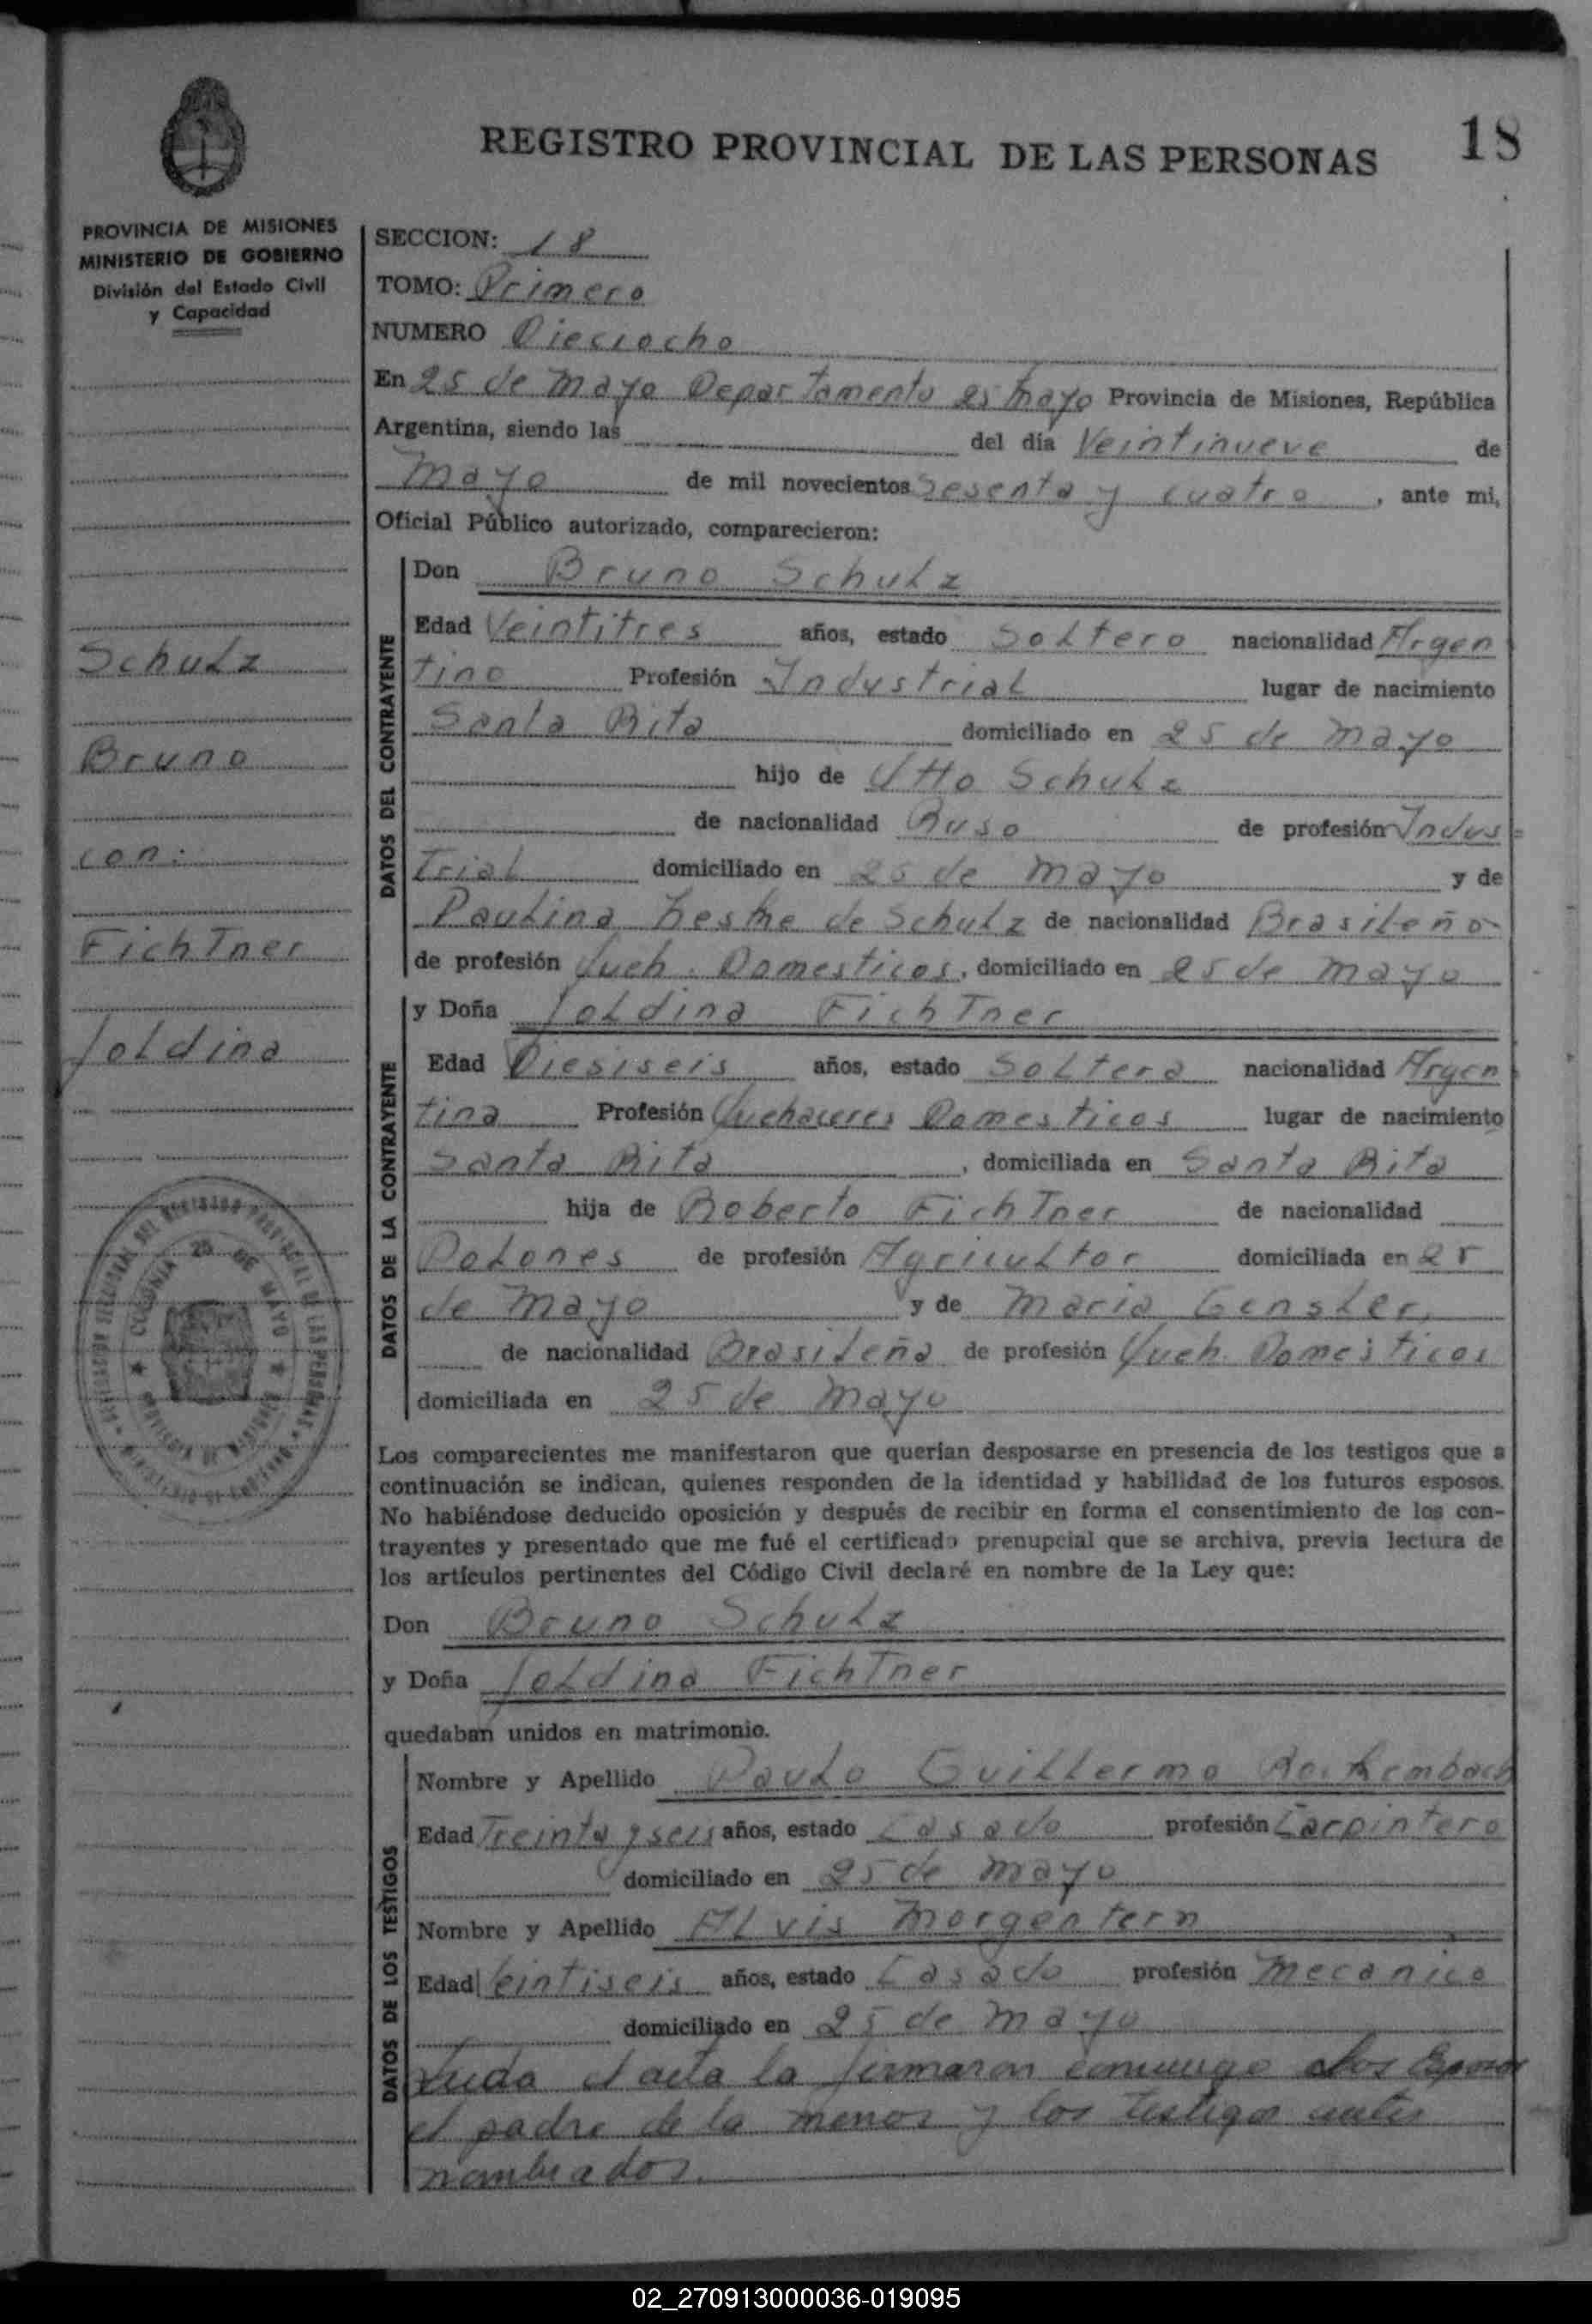 REGISTRO PROVINCIAL DE LAS PERSONAS
18
PROVINCIA DE MISIONES
MINISTERIO DE GOBIERNO
División del Estado Civil
y Capacidad
Schulz
Bruno
con:
Fichtner
Joldina
COLONIA 25 DE MAYO
SECCION: 18
TOMO: Primero
NUMERO Dieciocho
En 25 de Mayo Departamento 25 Mayo Provincia de Misiones, República
Argentina, siendo las del día Veintinueve de
Mayo de mil novecientos Sesenta y cuatro, ante mi,
Oficial Público autorizado, comparecieron:
DATOS DEL CONTRAYENTE
Don Bruno Schulz
Edad Veintitres años, estado Soltero nacionalidad Argen
tino Profesión Industrial lugar de nacimiento
Santa Rita domiciliado en 25 de Mayo
hijo de Otto Schulz
de nacionalidad Ruso de profesión Indus=
trial domiciliado en 25 de Mayo y de
Paulina de Schulz de nacionalidad Brasileña
de profesión Queh. Domesticos, domiciliado en 25 de Mayo
DATOS DE LA CONTRAYENTE
y Doña Joldina Fichtner
Edad Diesiseis años, estado Soltera nacionalidad Argen
tina Profesión Quehaceres Domesticos lugar de nacimiento
Santa Rita, domiciliada en Santa Rita
hija de Roberto Fichtner de nacionalidad
Polones de profesión Agricultor domiciliada en 25
de Mayo y de Maria Gensler,
de nacionalidad Brasileña de profesión Queh. Domesticos
domiciliada en 25 de Mayo
Los comparecientes me manifestaron que querían desposarse en presencia de los testigos que a
continuación se indican, quienes responden de la identidad y habilidad de los futuros esposos.
No habiéndose deducido oposición y después de recibir en forma el consentimiento de los con-
trayentes y presentado que me fué el certificado prenupcial que se archiva, previa lectura de
los artículos pertinentes del Código Civil declaré en nombre de la Ley que:
Don Bruno Schulz
y Doña Joldina Fichtner
quedaban unidos en matrimonio.
DATOS DE LOS TESTIGOS
Nombre y Apellido Paulo Guillermo
Edad Treinta y seis años, estado Casado profesión Carpintero
domiciliado en 25 de Mayo
Nombre y Apellido Alvis Morgentern
Edad Veintiseis años, estado Casado profesión Mecanico
domiciliado en 25 de Mayo
Leida el acta la firmaron conmigo los Esposos
el padre de la menor y los testigos antes
nombrados.
02_270913000036-019095